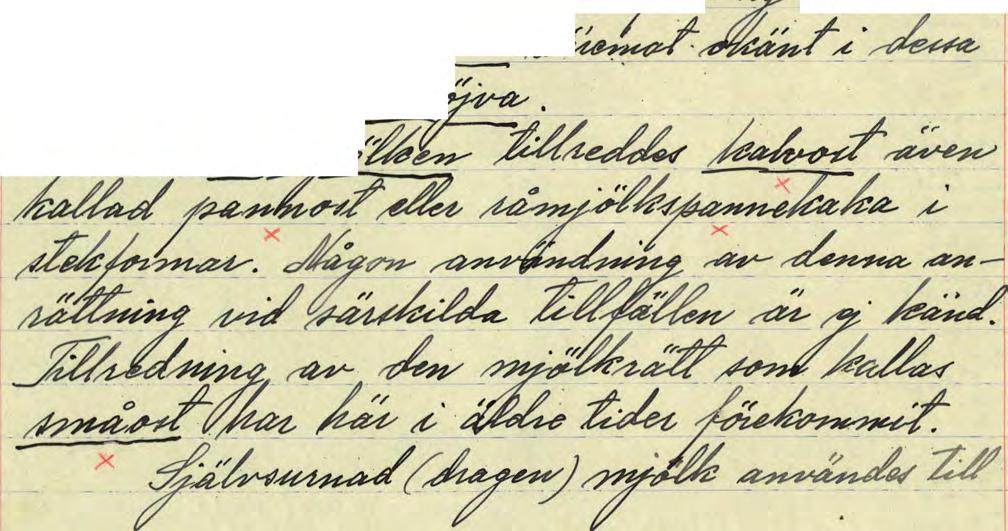 okänt i dessa
tillreddes kalvost även
kallad pannost eller råmjölkspannekaka i
stekformar. Någon användning av denna an-
rättning vid särskilda tillfällen är ej känd.
Tillredning av den mjölkrätt som kallas
småost har här i äldre tider förekommit.
Självsurnad (dragen) mjölk användes till